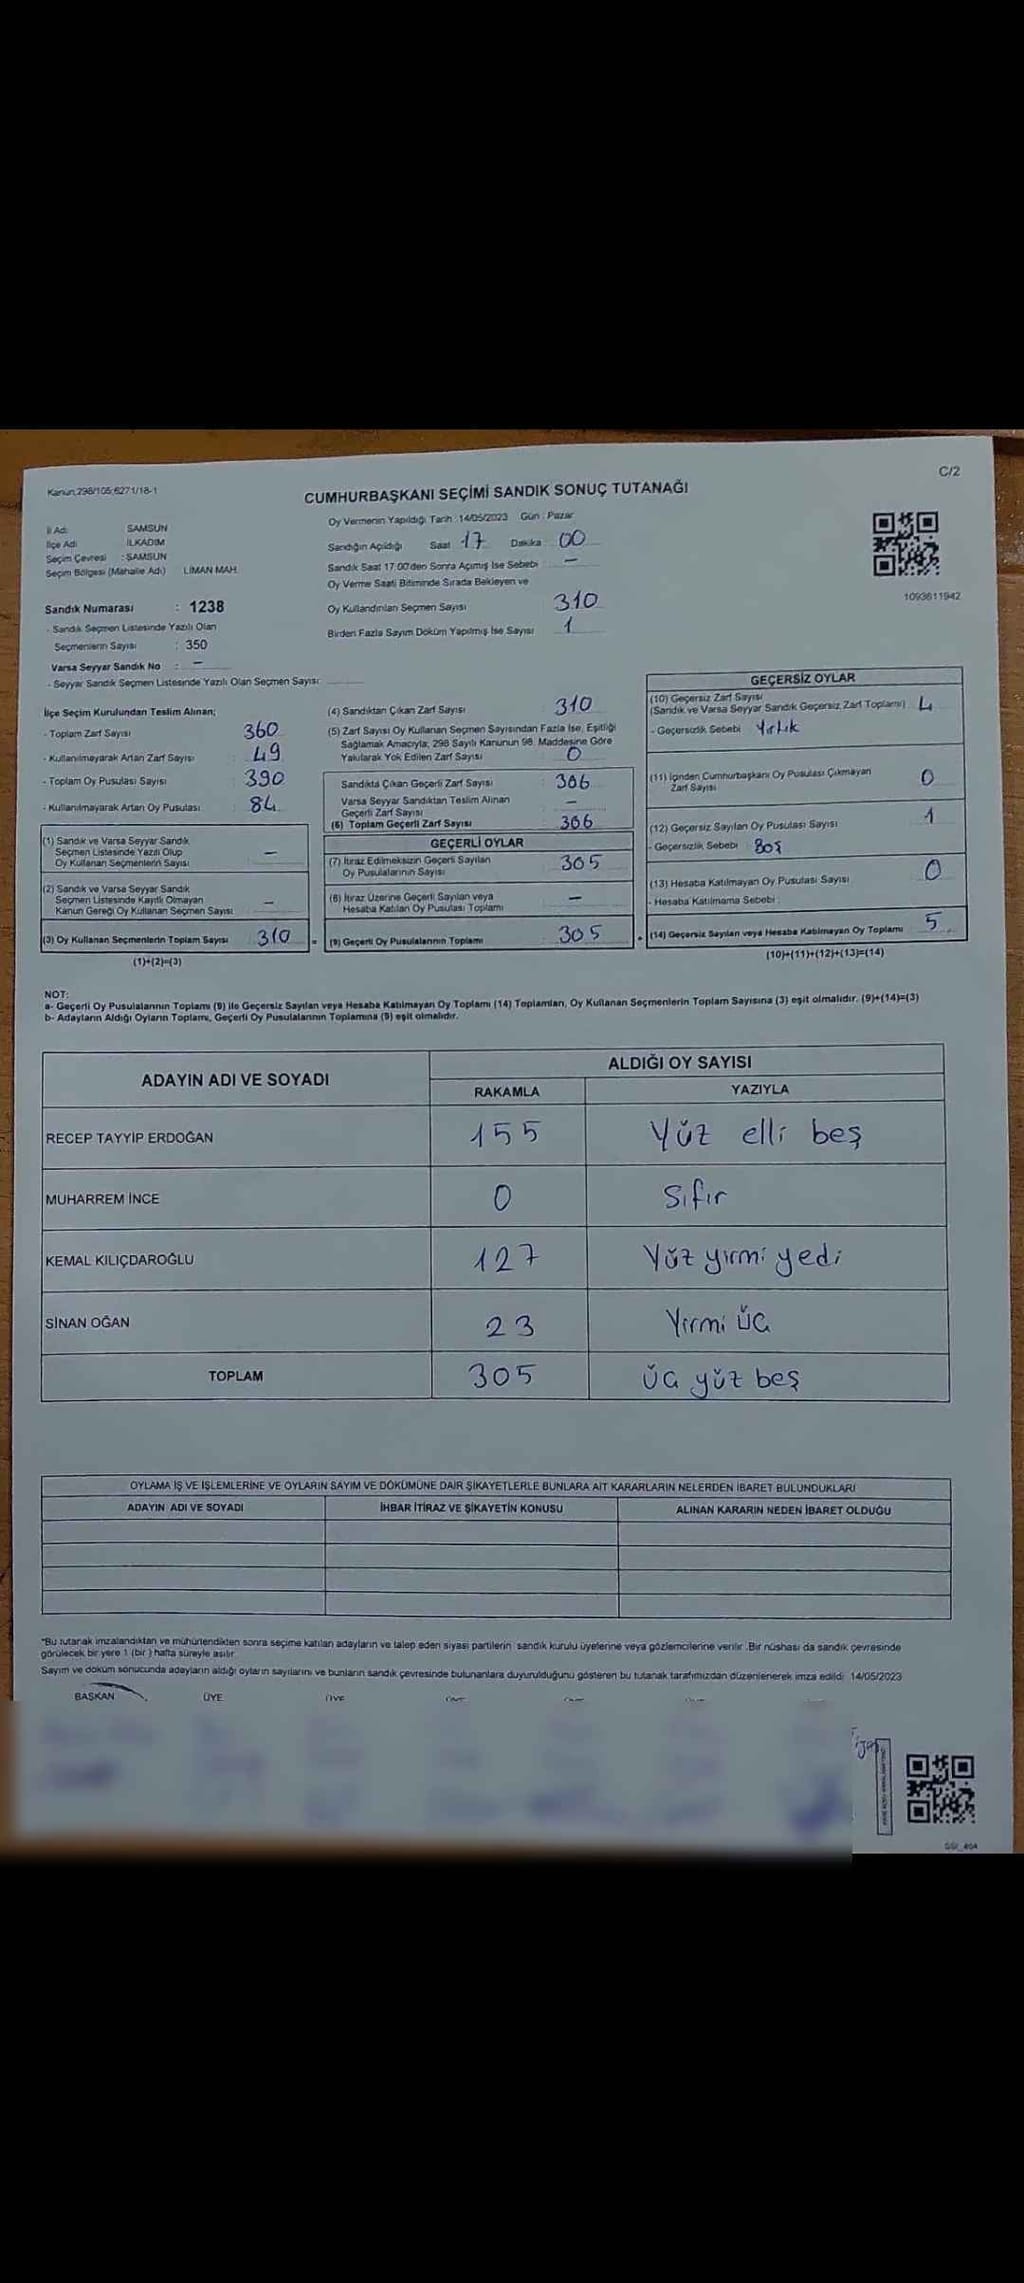 C/2
Kanun 298/105;6271/18-1
CUMHURBAŞKANI SEÇİMİ SANDIK SONUÇ TUTANAĞI
İl Adı: SAMSUN
İlçe Adı İLKADIM
Seçim Çevresi : SAMSUN
Seçim Bölgesi (Mahalle Adı) LİMAN MAH.
Oy Vermenin Yapıldığı Tarih :14/05/2023 Gün : Pazar
Sandığın Açıldığı Saat 17 Dakika 00
Sandık Saat 17:00'den Sonra Açımış İse Sebebi –
Oy Verme Saati Bitiminde Sırada Bekleyen ve
Oy Kullandırılan Seçmen Sayısı 310
Birden Fazla Sayım Döküm Yapılmış İse Sayısı 1
1093611942
Sandık Numarası : 1238
- Sandık Seçmen Listesinde Yazılı Olan
Seçmenlerin Sayısı : 350
Varsa Seyyar Sandık No : –
- Seyyar Sandık Seçmen Listesinde Yazılı Olan Seçmen Sayısı:
İlçe Seçim Kurulundan Teslim Alınan;
- Toplam Zarf Sayısı 360
- Kullanılmayarak Artan Zarf Sayısı : 49
- Toplam Oy Pusulası Sayısı 390
- Kullanılmayarak Artan Oy Pusulası : 84
(1) Sandık ve Varsa Seyyar Sandık
Seçmen Listesinde Yazılı Olup
Oy Kullanan Seçmenlerin Sayısı –
(2) Sandık ve Varsa Seyyar Sandık
Seçmen Listesinde Kayıtlı Olmayan
Kanun Gereği Oy Kullanan Seçmen Sayısı –
(3) Oy Kullanan Seçmenlerin Toplam Sayısı 310
(1)+(2)=(3)
(4) Sandıktan Çıkan Zarf Sayısı 310
(5) Zarf Sayısı Oy Kullanan Seçmen Sayısından Fazla İse, Eşitliği
Sağlamak Amacıyla, 298 Sayılı Kanunun 98. Maddesine Göre
Yakılarak Yok Edilen Zarf Sayısı 0
Sandıkta Çıkan Geçerli Zarf Sayısı : 306
Varsa Seyyar Sandıktan Teslim Alınan
Geçerli Zarf Sayısı –
(6) Toplam Geçerli Zarf Sayısı : 306
GEÇERLİ OYLAR
(7) İtiraz Edilmeksizin Geçerli Sayılan
Oy Pusulalarının Sayısı : 305
(8) İtiraz Üzerine Geçerli Sayılan veya
Hesaba Katılan Oy Pusulası Toplamı –
= (9) Geçerli Oy Pusulalarının Toplamı : 305
GEÇERSİZ OYLAR
(10) Geçersiz Zarf Sayısı
(Sandık ve Varsa Seyyar Sandık Geçersiz Zarf Toplamı) 4
- Geçersizlik Sebebi Yırtık
(11) İçinden Cumhurbaşkanı Oy Pusulası Çıkmayan
Zarf Sayısı 0
(12) Geçersiz Sayılan Oy Pusulası Sayısı 1
- Geçersizlik Sebebi : Boş
(13) Hesaba Katılmayan Oy Pusulası Sayısı 0
- Hesaba Katılmama Sebebi :
+ (14) Geçersiz Sayılan veya Hesaba Katılmayan Oy Toplamı 5
(10)+(11)+(12)+(13)=(14)
NOT:
a- Geçerli Oy Pusulalarının Toplamı (9) ile Geçersiz Sayılan veya Hesaba Katılmayan Oy Toplamı (14) Toplamları, Oy Kullanan Seçmenlerin Toplam Sayısına (3) eşit olmalıdır. (9)+(14)=(3)
b- Adayların Aldığı Oyların Toplamı, Geçerli Oy Pusulalarının Toplamına (9) eşit olmalıdır.
ADAYIN ADI VE SOYADI ALDIĞI OY SAYISI
RAKAMLA YAZIYLA
RECEP TAYYİP ERDOĞAN 155 Yüz elli beş
MUHARREM İNCE 0 Sıfır
KEMAL KILIÇDAROĞLU 127 Yüz yirmi yedi
SİNAN OĞAN 23 Yirmi üç
TOPLAM 305 üç yüz beş
OYLAMA İŞ VE İŞLEMLERİNE VE OYLARIN SAYIM VE DÖKÜMÜNE DAİR ŞİKAYETLERLE BUNLARA AİT KARARLARIN NELERDEN İBARET BULUNDUKLARI
ADAYIN ADI VE SOYADI İHBAR İTİRAZ VE ŞİKAYETİN KONUSU ALINAN KARARIN NEDEN İBARET OLDUĞU
*Bu tutanak imzalandıktan ve mühürlendikten sonra seçime katılan adayların ve talep eden siyasi partilerin sandık kurulu üyelerine veya gözlemcilerine verilir. Bir nüshası da sandık çevresinde
görülecek bir yere 1 (bir) hafta süreyle asılır.
Sayım ve döküm sonucunda adayların aldığı oyların sayılarını ve bunların sandık çevresinde bulunanlara duyurulduğunu gösteren bu tutanak tarafımızdan düzenlenerek imza edildi. 14/05/2023
BAŞKAN ÜYE ÜYE